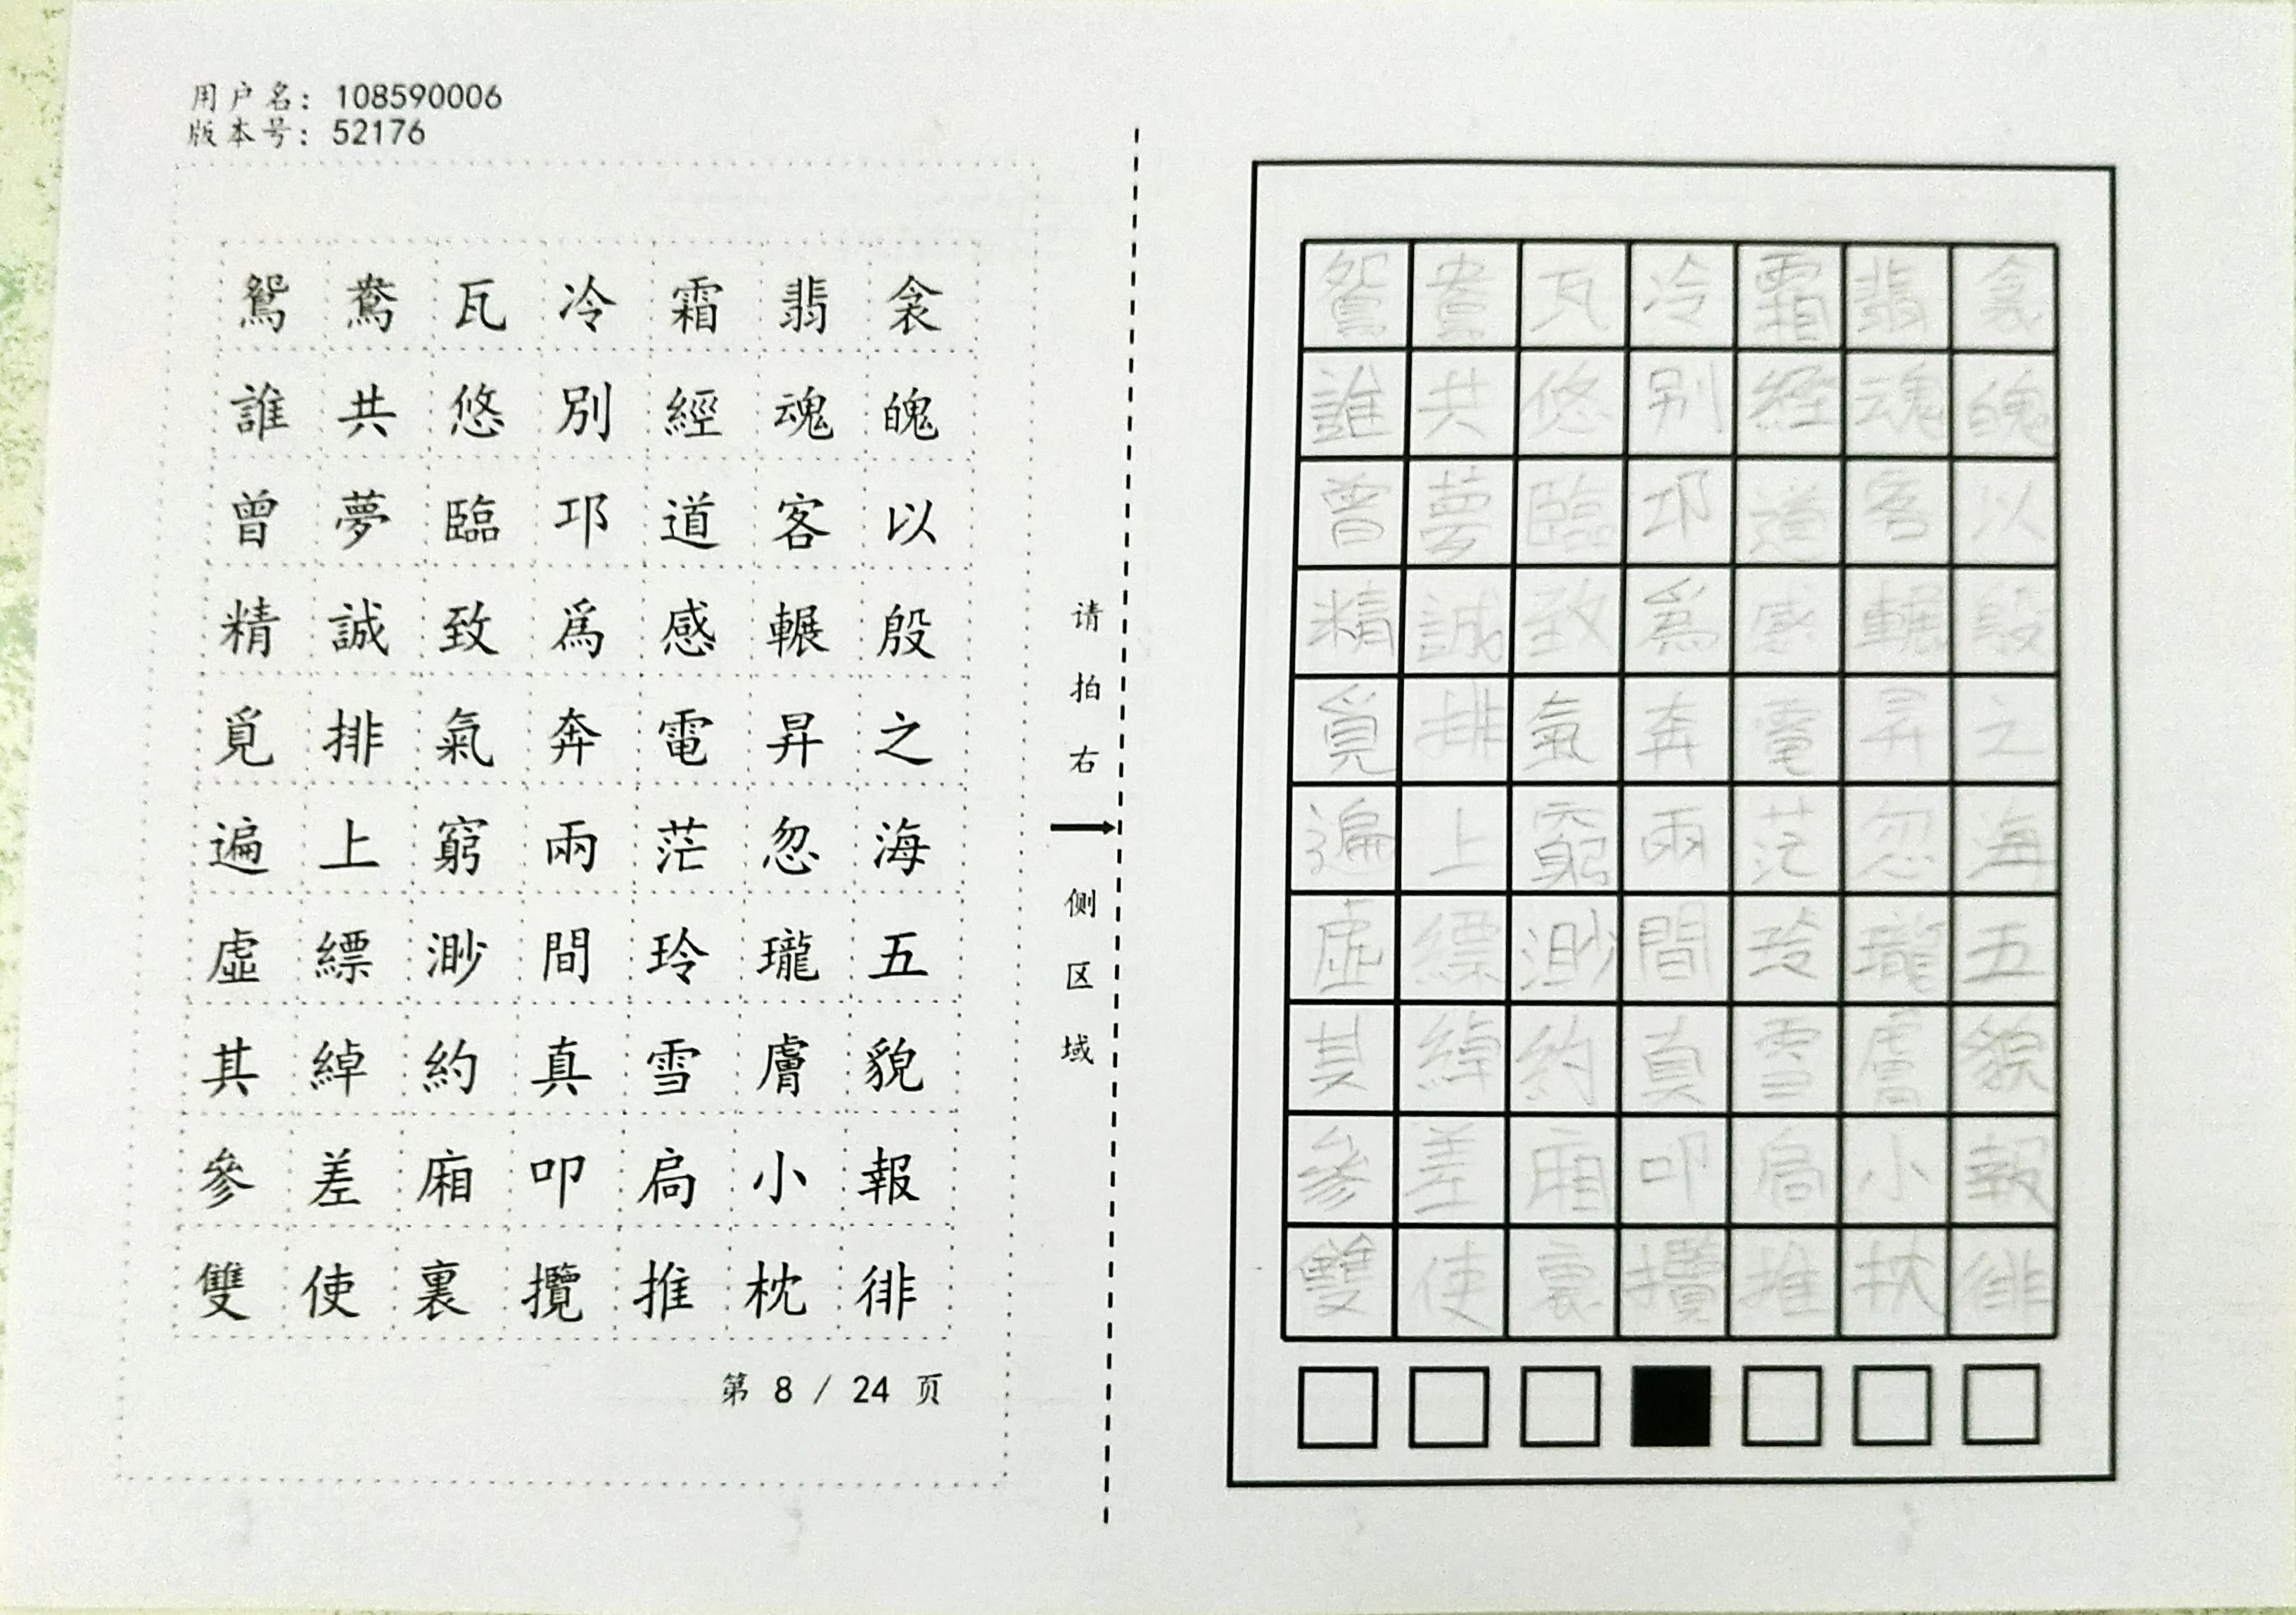 用户名: 108590006
版本号: 52176
鴛鴦瓦冷霜翡衾
誰共悠別經魂魄
曾夢臨邛道客以
精誠致爲感輾殷
覓排氣奔電昇之
遍上窮兩茫忽海
虛縹渺間玲瓏五
其綽約真雪膚貌
參差廂叩扃小報
雙使裏攬推枕徘
第 8 / 24 页
请拍右
侧区域
鴛鴦瓦冷霜翡衾
誰共悠別經魂魄
曾夢臨邛道客以
精誠致爲感輾殷
覓排氣奔電昇之
遍上窮兩茫忽海
虛縹渺間玲瓏五
其綽約真雪膚貌
參差廂叩扃小報
雙使裏攬推枕徘